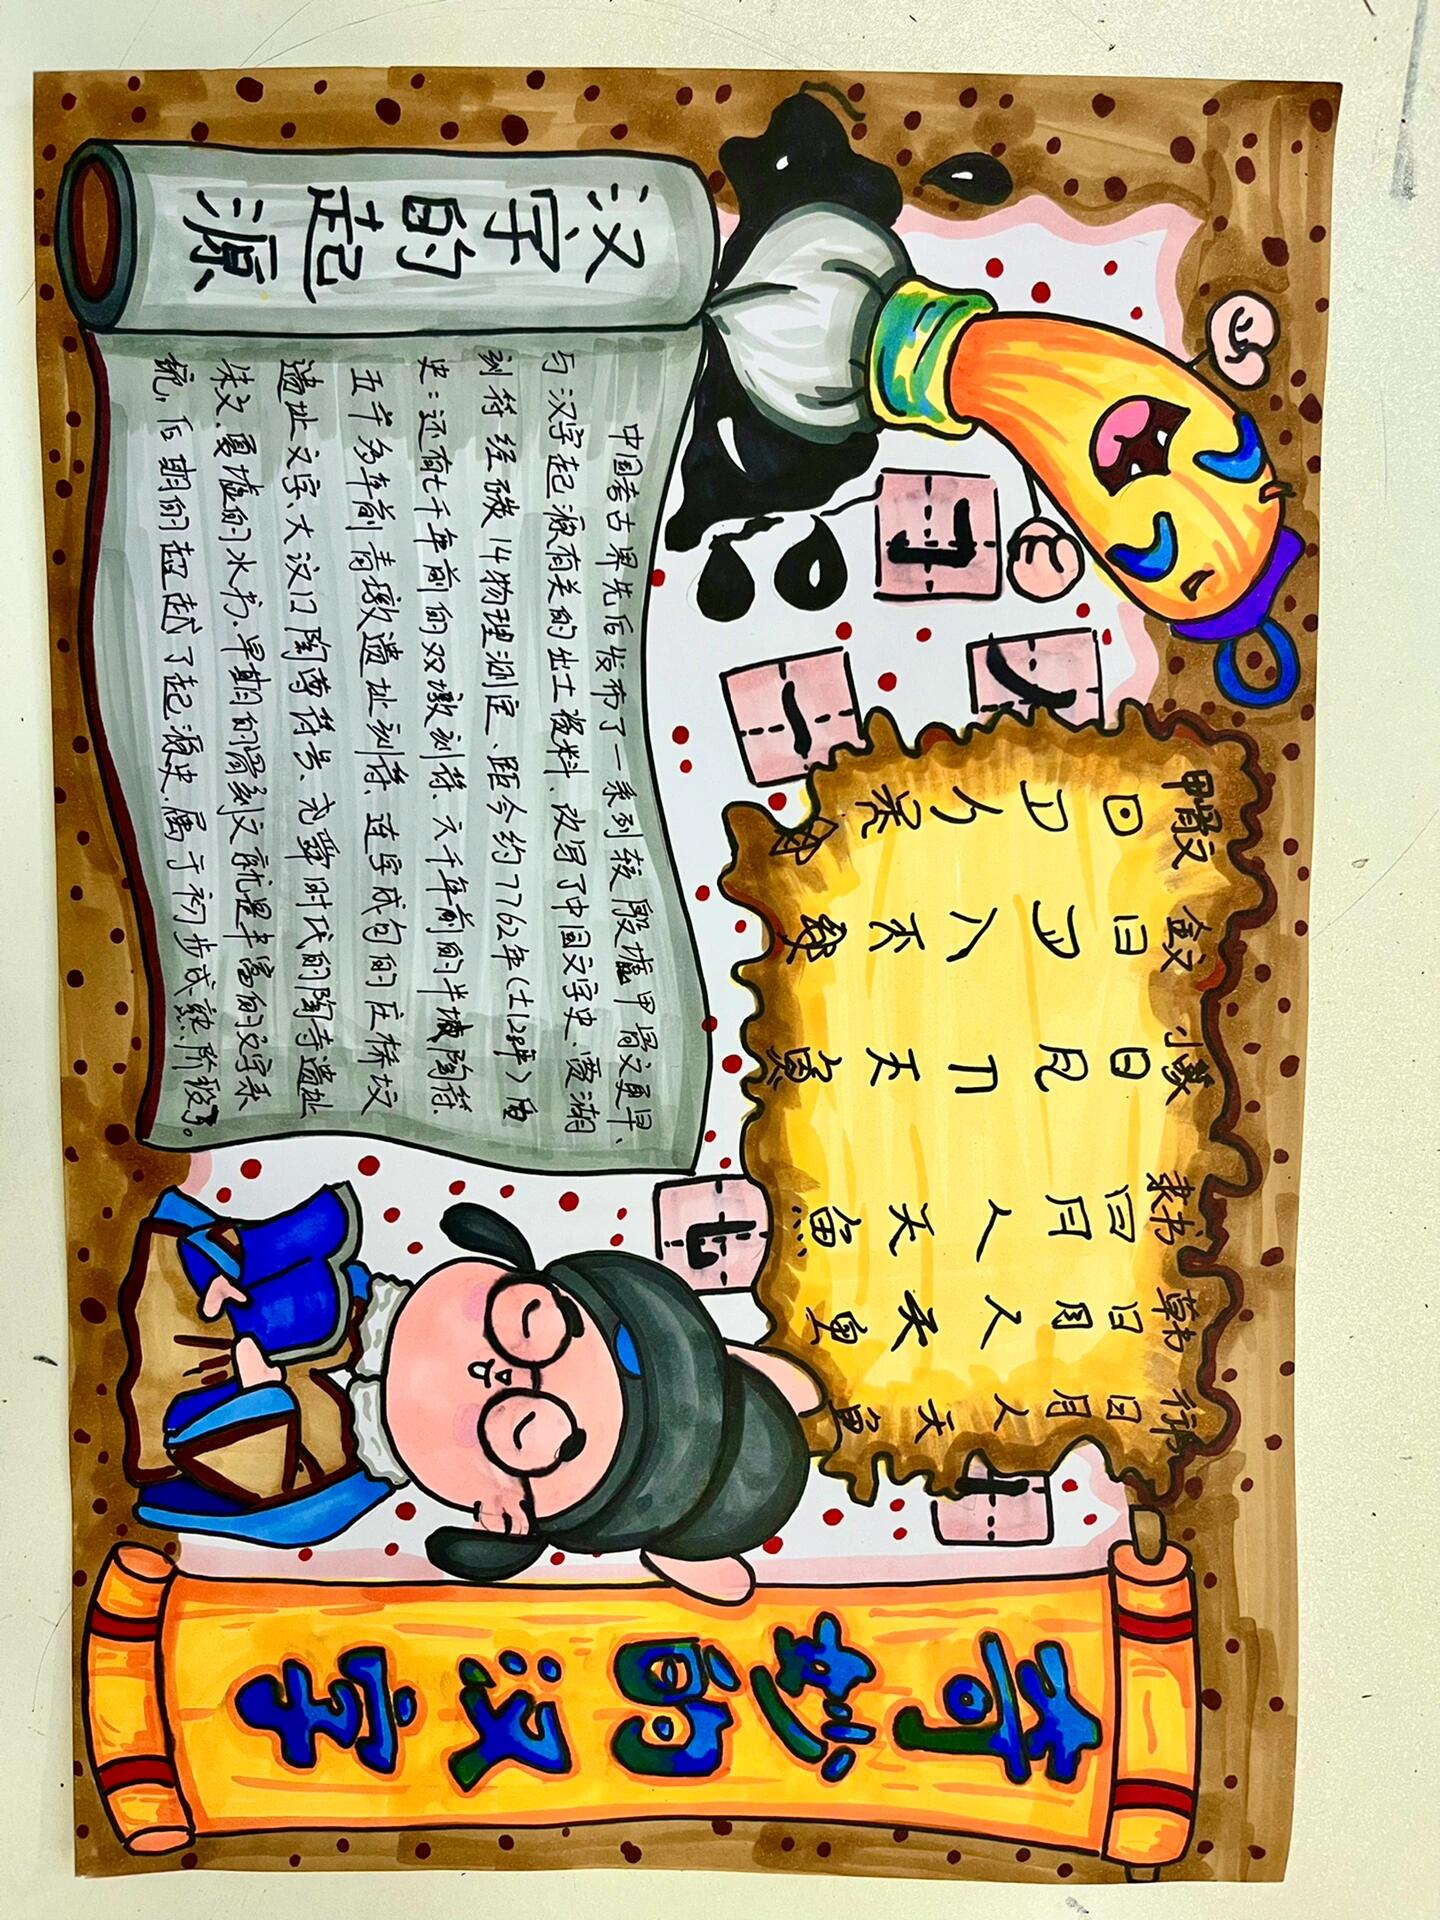 奇妙的汉字
汉字的起源
中国考古界先后发布了一系列较殷墟甲骨文更早、
与汉字起源有关的出土资料、改写了中国文字史、贾湖
刻符经碳14物理测定、距今约7762年(±128年)历
史:还有七千年前的双墩刻符、六千年前的半坡陶符
五千多年前青墩遗址刻符、连字成句的庄桥坟
遗址文字、大汶口陶尊符号、尧舜时代的陶寺遗址
朱文、夏墟的水书、早期的骨刻文就是丰富的文字系
统,后期的超越了起源史、属于初步成熟、阶段了。
甲骨文 金文 小篆 隶书 草书 行书
日 日 日 日 日 日
月 月 月 月 月 月
人 人 人 人 人 人
天 天 天 天 天 天
鱼 鱼 鱼 鱼 鱼 鱼